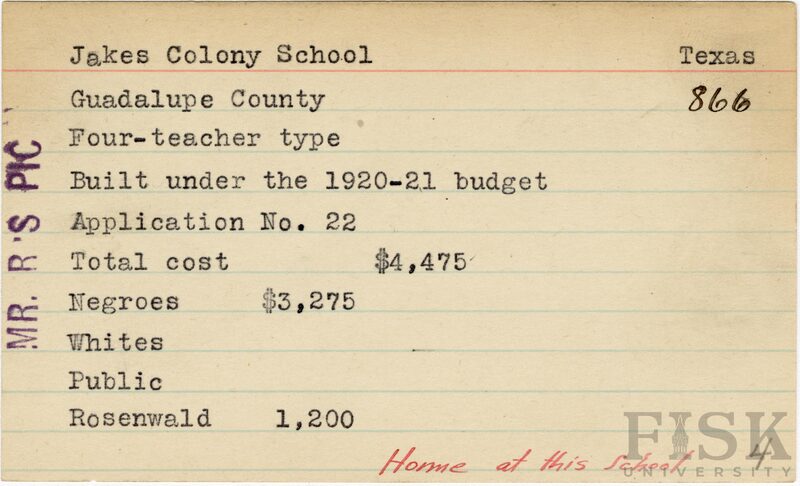 Jakes Colony School Texas
Guadalupe County 866
Four-teacher type
Built under the 1920-21 budget
Application No. 22
Total cost $4,475
Negroes $3,275
Whites
Public
Rosenwald 1,200
Home at this School 4
MR. R'S PIC
FISK
UNIVERSITY